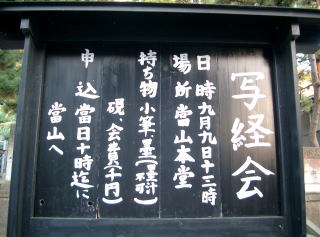 写経会
日時九月九日十三時
場所當山本堂
持ち物小筆、墨(墨汁不可)
硯、会費(千円)
申込當日十時迄に
當山へ